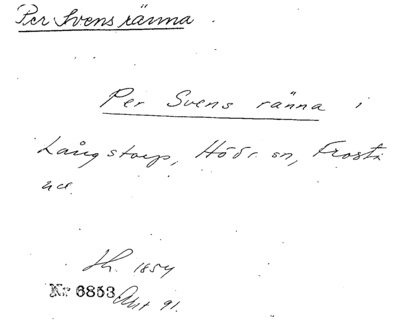 Per Svens ränna
Per Svens ränna i
Långstorp, Höör sn, Frosta
hd.
1854
Nr 6853 Akt 91.